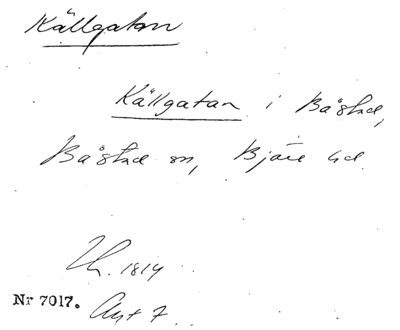 Källgatan
Källgatan i Båstad,
Båstad sn, Bjäre hd
Th. 1819
Nr 7017. Akt 7